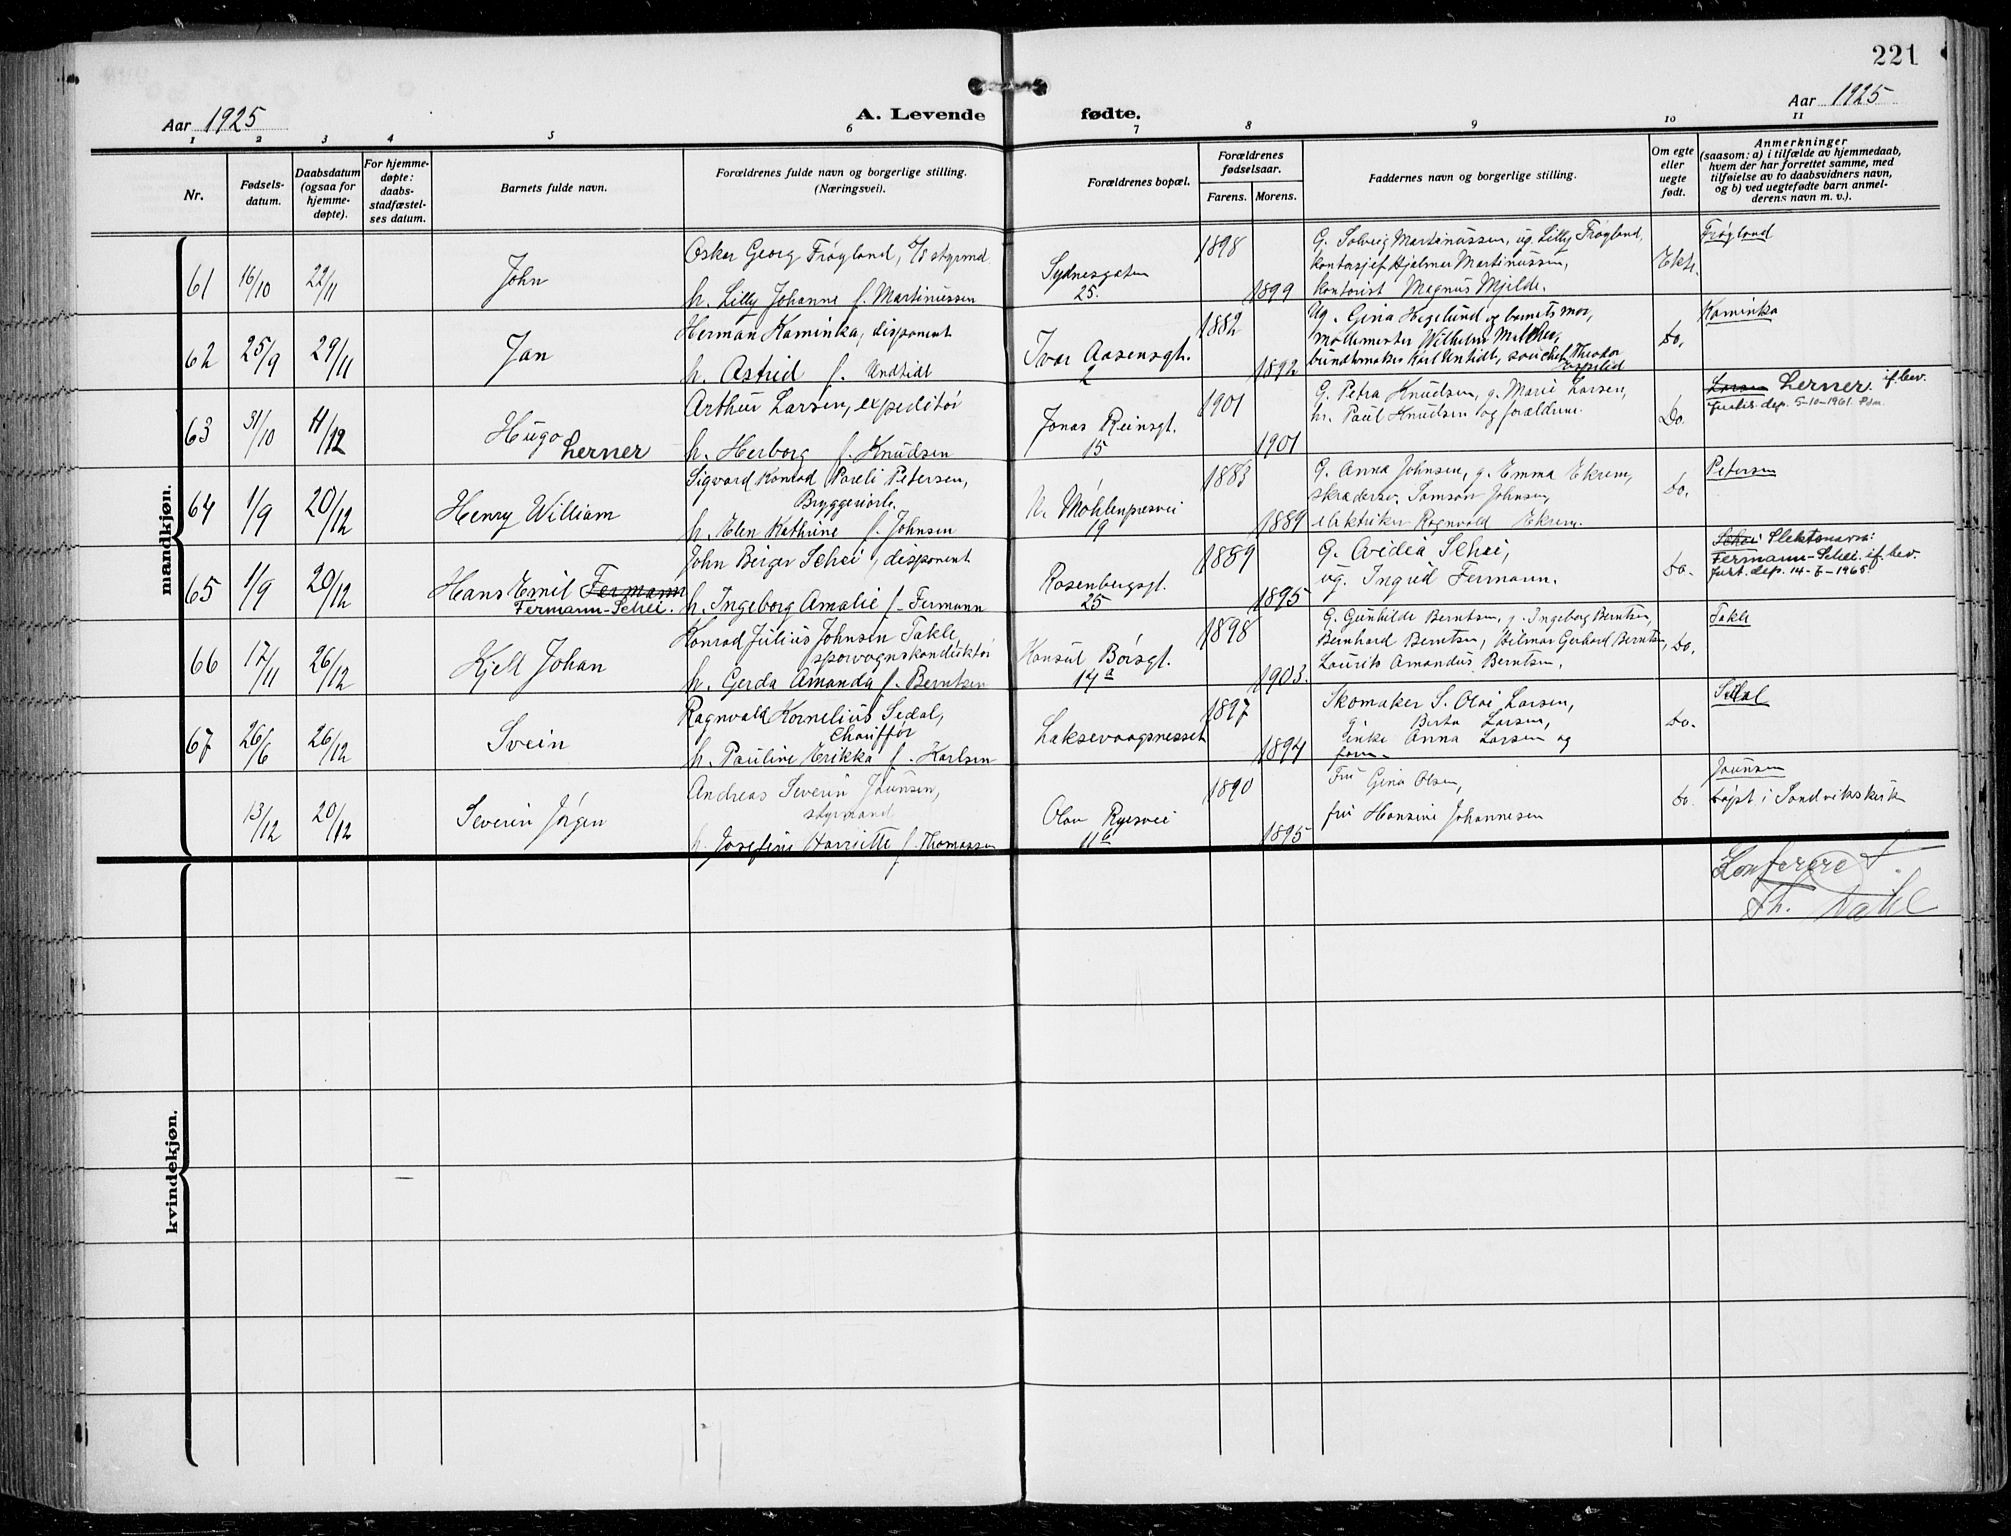 221
Aar 1925
A. Levende fødte.
Aar 1925
1 2 3 4 5 6 7 8 9 10 11
Nr.
Fødsels-
datum.
Daabsdatum
(ogsaa for
hjemme-
døpte).
For hjemme-
døpte:
daabs-
stadfæstel-
ses datum.
Barnets fulde navn.
Forældrenes fulde navn og borgerlige stilling.
(Næringsvei).
Forældrenes bopæl.
Forældrenes
fødselsaar.
Farens. Morens.
Faddernes navn og borgerlige stilling.
Om egte
eller
uegte
født.
Anmerkninger
(saasom: a) i tilfælde av hjemmedaab,
hvem der har forrettet samme, med
tilføielse av to daabsvidners navn,
og b) ved uegtefødte barn anmel-
derens navn m. v.).
mandkjøn.
61 16/10 22/11 John
Oskar Georg Frøyland, styrmd.
h. Lilly Johanne f. Martinussen
Sydnesgaten
25.
1898 1899
G. Solveig Martinussen, ug. Lilly Frøyland,
kontorsjef Hjalmar Martinussen,
kontorist Magnus Mjelde.
Ekte.
Frøyland
62 25/9 29/11 Jan
Herman Kaminka, disponent
h. Astrid f. Undtidt
Ivar Aasensgt.
2
1882 1892
Ug. Gina Hegelund og barnets mor,
Møllemester Wilhelm
buntmaker Karl Untidt, Theodor
Do.
Kaminka
63 31/10 4/12 Hugo Lerner
Arthur Larsen, expeditør
h. Herborg f. Knudsen
Jonas Reinsgt.
15
1901 1901
G. Petra Knudsen, g. Marie Larsen,
hr. Paul Knudsen og forældrene.
Do.
Larsen Lerner if. bev.
Justis. dep. 5-10-1961.
64 1/9 20/12 Henry William
Sigvard Konrad Pareli Petersen,
Bryggeriarb.
h. Elen Kathrine f. Johnsen
N. Møhlenprisvei
19
1883 1889
G. Anna Johnsen, g. Emma Ekrem,
skræddersv. Samson Johnsen,
elektriker Ragnvald Ekrem.
Do.
Petersen
65 1/9 20/12 Hans Emil Fermann
Fermann-Schei.
John Birger Schei, disponent
h. Ingeborg Amalie f. Fermann
Rosenbergsgt.
25
1889 1895
G. Ovidia Schei,
ug. Ingrid Fermann.
Do.
Schei Slektsnavn:
Fermann-Schei if. bev.
Just. dep. 14-7-1965
66 17/11 26/12 Kjell Johan
Konrad Julius Johnsen Takle
sporvognskonduktør
h. Gerda Amanda f. Berntsen
Konsul Børsgt.
14 a
1898 1903.
G. Gunhilde Berntsen, g. Ingeborg Berntsen,
Bernhard Berntsen, Hilmar Gerhard Berntsen,
Laurits Amandus Berntsen.
Do.
Takle
67 26/6 26/12 Svein
Ragnvald Kornelius Sedal,
Chauffør
h. Pauline Erikka f. Karlsen
Laksevaagnesset
1897 1894
Skomaker S. Olai Larsen,
Berta Larsen,
Enke Anna Larsen og
Do.
Sedal
13/12 20/12 Severin Jørgen
Andreas Severin Jounsen,
styrmand
h. Josefine Harriette f. Thomassen
Olav Ryesvei
11 b
1890 1895
Fru Gina Olsen,
fru Hansine Johannesen
Do.
Jounsen
Døpt i Sandvikskirk
Konferert.
Th. Dahl
kvindekjøn.